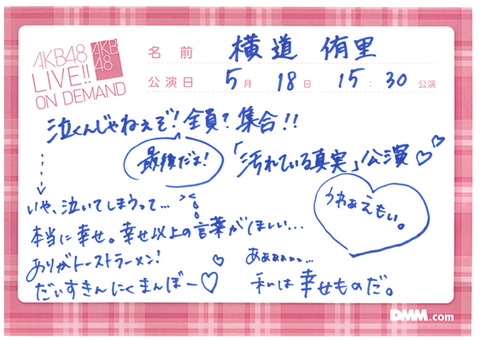 AKB48
LIVE!!
ON DEMAND
AKB
48
名前 横道 侑里
公演日 5月 18日 15:30 公演
泣くんじゃねぇぞ!全員?集合!!
最後だよ!
「汚れている真実」公演♡♡
いや、泣いてしまうって…
本当に幸せ。幸せ以上の言葉がほしい…
うわぁえもい。
ありがトーストラーメン!
だいすきんにくまんぼー♡
あぁぁぁぁ…
私は幸せものだ。
DMM.com